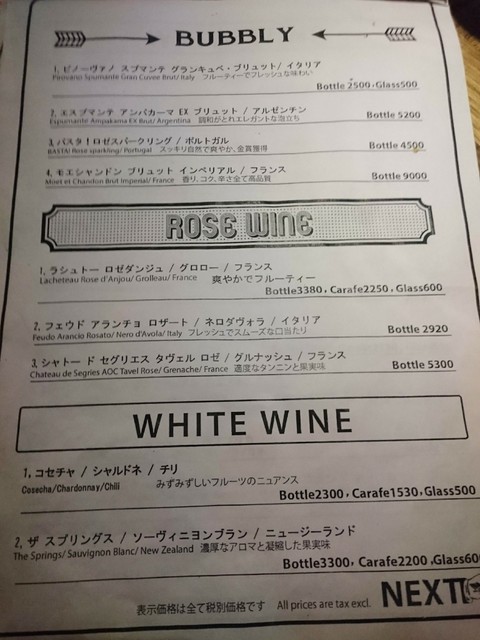 BUBBLY
1, ピノーヴァノ スプマンテ グランキュベ・ブリュット/ イタリア
Pinovano Spumante Gran Cuvee Brut/ Italy フルーティーでフレッシュな味わい
Bottle 2500・Glass500
2, エスプマンテ アンパカーマ EX ブリュット / アルゼンチン
Espumante Ampakama EX Brut/ Argentina 調和がとれエレガントな泡立ち
Bottle 5200
3, バスタ！ロゼスパークリング / ポルトガル
BASTA! Rose sparkling/ Portugal スッキリ自然で爽やか、金賞獲得
Bottle 4500
4, モエシャンドン ブリュット インペリアル / フランス
Moet et Chandon Brut Imperial/ France 香り、コク、辛さ全て高品質
Bottle 9000
ROSE WINE
1, ラシュトー ロゼダンジュ / グロロー / フランス
Lacheteau Rose d'Anjou/ Grolleau/ France 爽やかでフルーティー
Bottle3380, Carafe2250, Glass600
2, フェウド アランチョ ロザート / ネロダヴォラ / イタリア
Feudo Arancio Rosato/ Nero d'Avola/ Italy フレッシュでスムーズな口当たり
Bottle 2920
3, シャトー ド セグリエス タヴェル ロゼ / グルナッシュ / フランス
Chateau de Segries AOC Tavel Rose/ Grenache/ France 適度なタンニンと果実味
Bottle 5300
WHITE WINE
1, コセチャ / シャルドネ / チリ
Cosecha/Chardonnay/Chili みずみずしいフルーツのニュアンス
Bottle2300, Carafe1530, Glass500
2, ザ スプリングス / ソーヴィニヨンブラン / ニュージーランド
The Springs/ Sauvignon Blanc/ New Zealand 濃厚なアロマと凝縮した果実味
Bottle3300, Carafe2200, Glass600
表示価格は全て税別価格です All prices are tax excl. NEXT